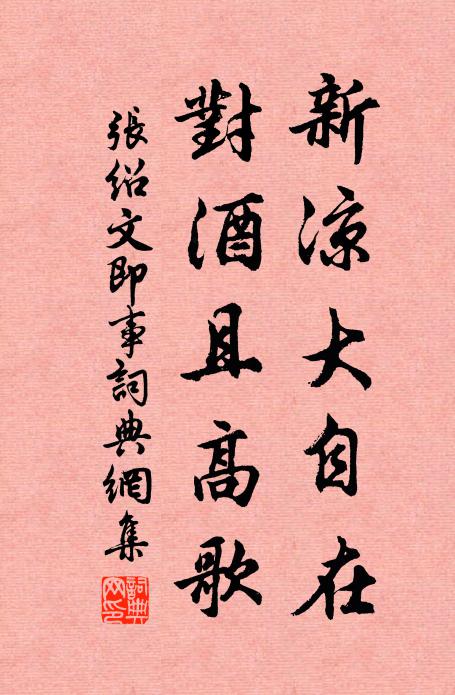 新凉大自在
對酒且高歌
張紹文即事詞典網集
詞典网印